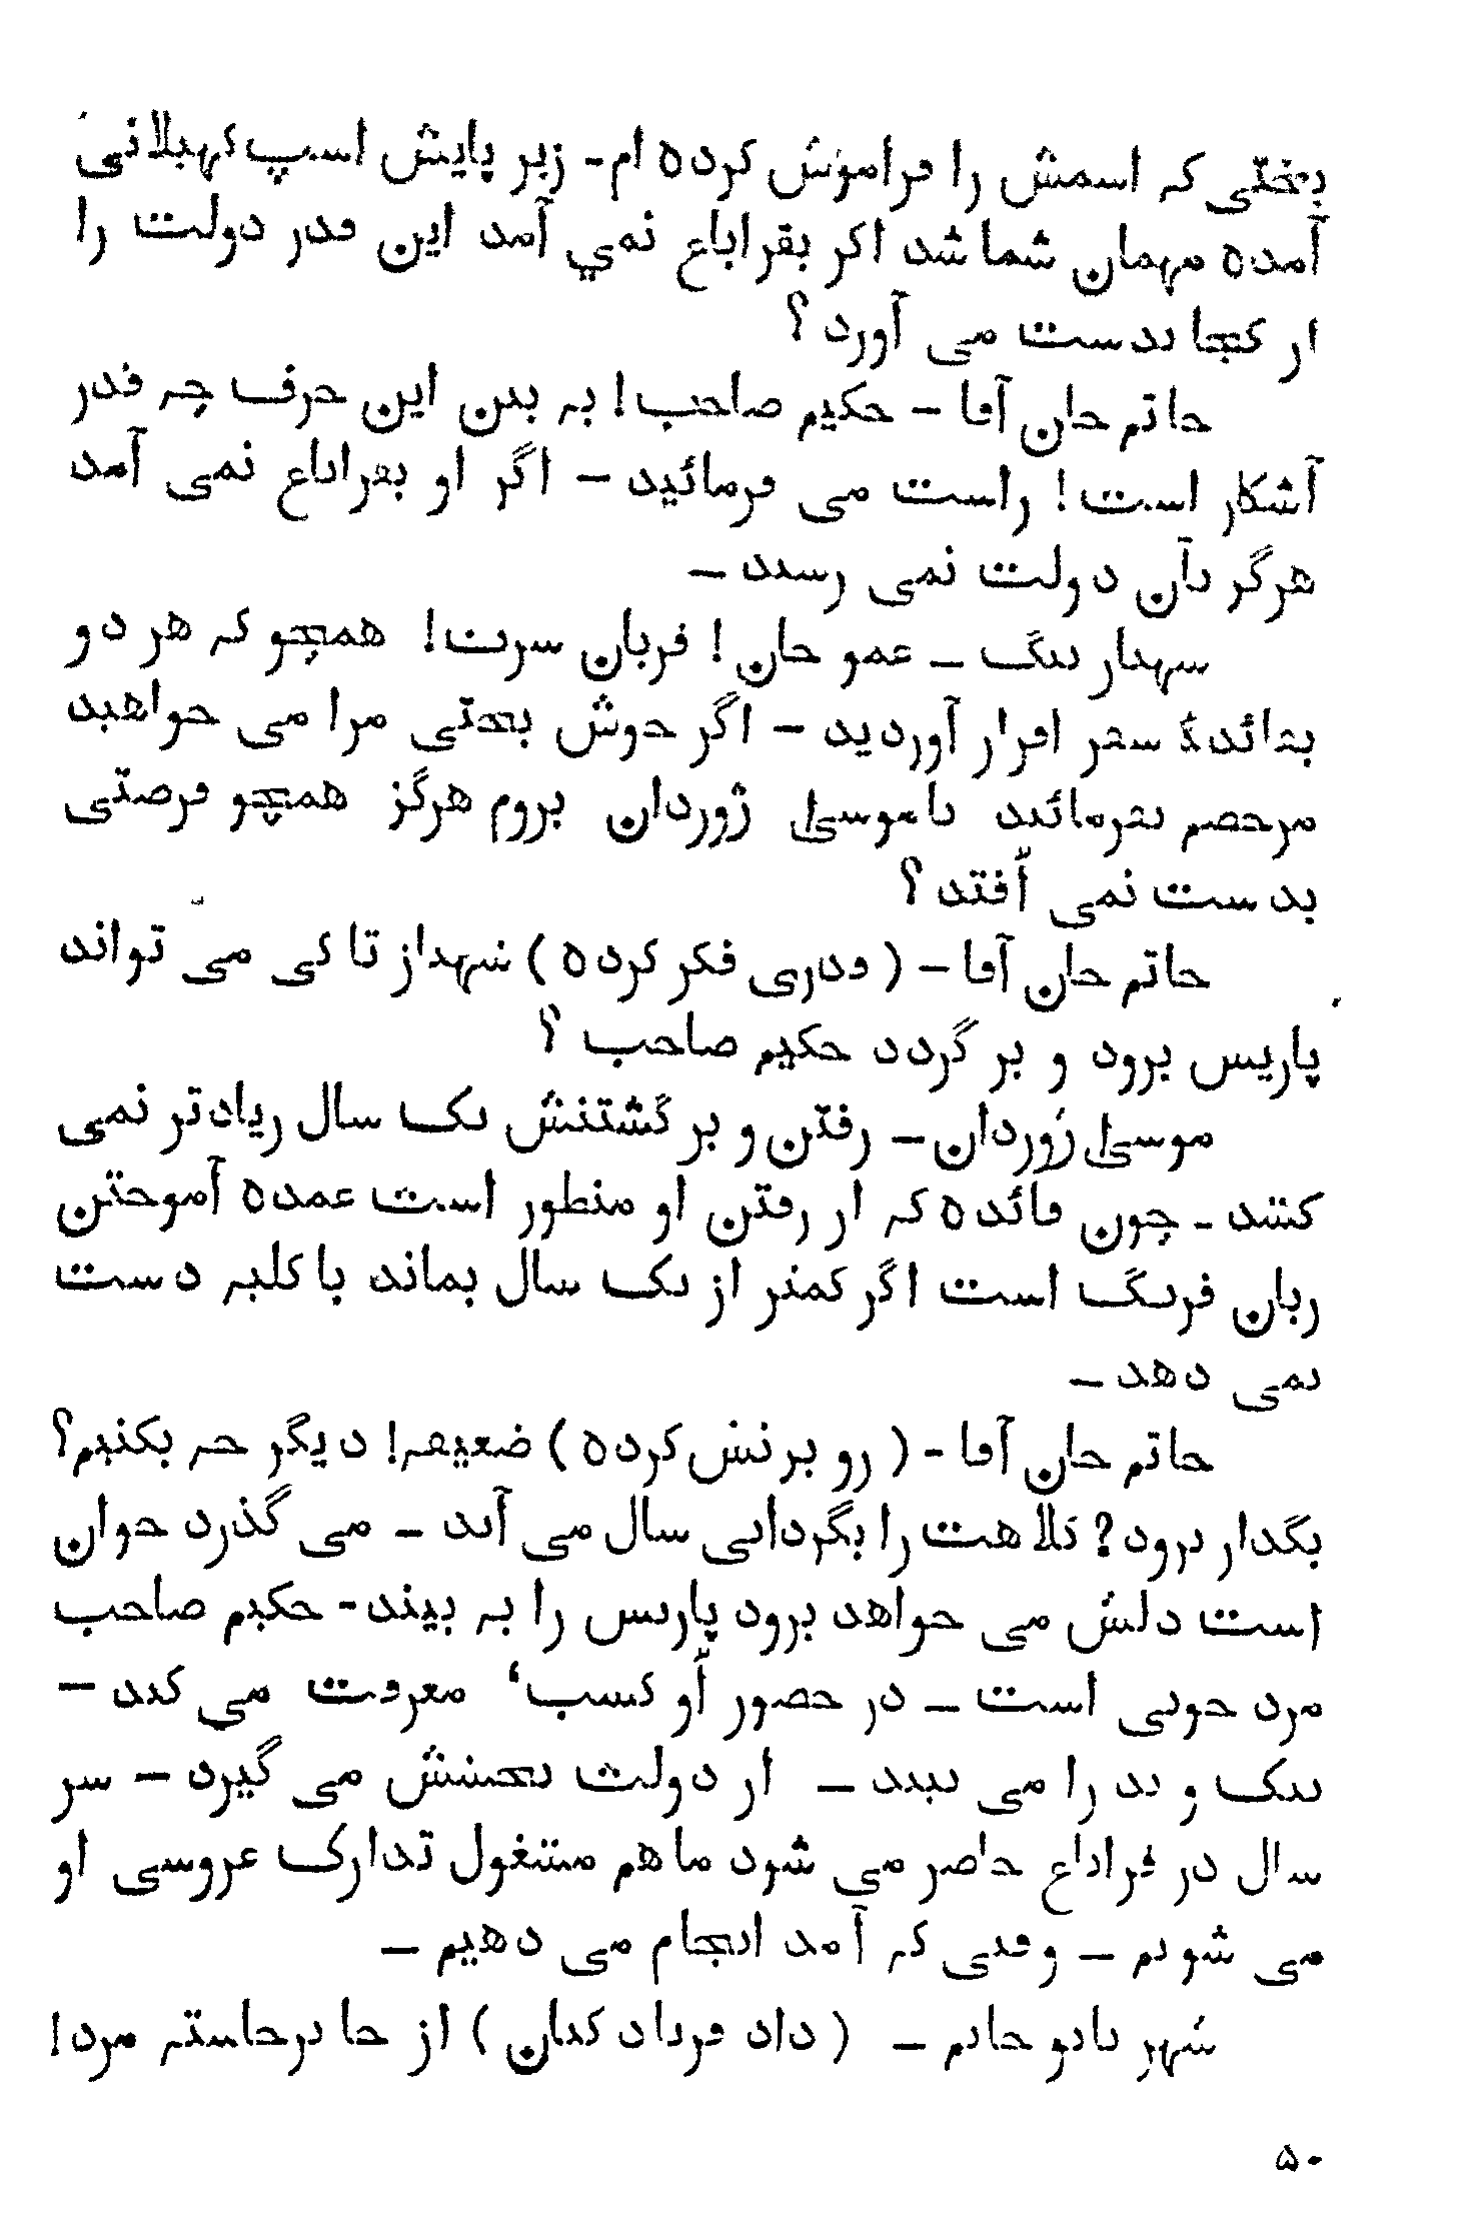 بختی که اسمش را فراموش کرده ام- زیر پایش اسپ کهیلانی
آمده مهمان شما شد اگر بقراباغ نمي آمد این قدر دولت را
از کجا بدست می آورد ؟
حاتم خان آقا – حکیم صاحب! به بین این حرف چه قدر
آشکار است! راست می فرمائید – اگر او بقراباغ نمی آمد
هرگز بآن دولت نمی رسید –
شهباز بیگ – عمو خان! قربان سرت! همچو که هر دو
بفائدهٔ سفر اقرار آوردید – اگر خوش بختی مرا می خواهید
مرخصم بفرمائید باموسیٰ ژوردان بروم هرگز همچو فرصتی
بدست نمی اُفتد ؟
حاتم خان آقا – (قدری فکر کرده) شهباز تا کی می تواند
پاریس برود و بر گردد حکیم صاحب ؟
موسیٰ ژوردان – رفتن و بر گشتنش یک سال زیادتر نمی
کشد – چون فائده که از رفتن او منظور است عمده آموختن
زبان فرنگ است اگر کمتر از یک سال بماند با کلیه دست
نمی دهد –
حاتم خان آقا – (رو بر نش کرده) ضعیفه! دیگر چه بکنیم؟
بگذار برود؟ کلاهت را بگردانی سال می آید – می گذرد جوان
است دلش می خواهد برود پاریس را به بیند- حکیم صاحب
مرد خوبی است – در حضور اُو کسب‘ معرفت می کند –
نیک و بد را می بیند – از دولت بخشش می گیرد – سر
سال در قراباغ حاضر می شود ما هم مشغول تدارک عروسی او
می شویم – وقتی که آمد انجام می دهیم –
شهر بانو خانم – (داد فریاد کنان) از جا برخاسته مرد!
۵۰